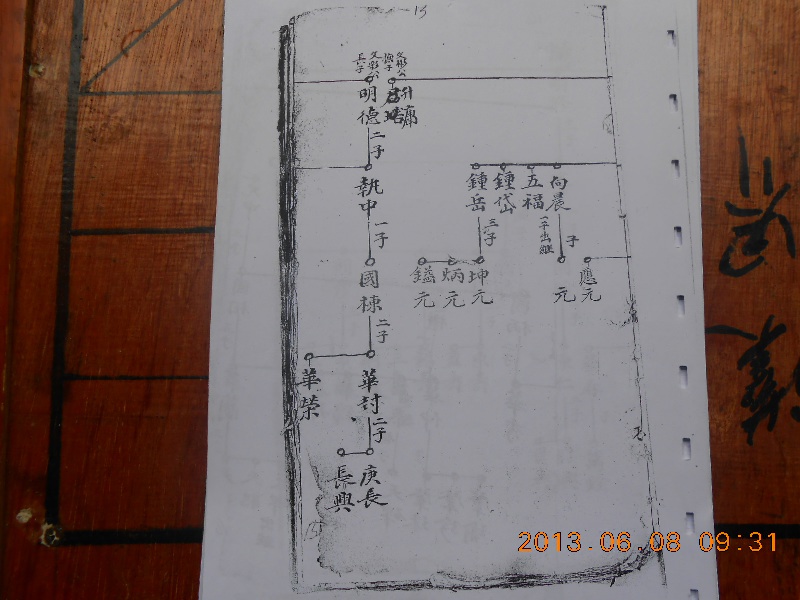 13
文彬公
文彬公
長子
明德
二子
向晨
五福
鍾岱
鍾岳
一子出継
子
三子
執中
一子
應元
元
坤元
炳元
鎰元
國棟
二子
華封
華榮
二子
庚長
長興
2013.06.08 09:31